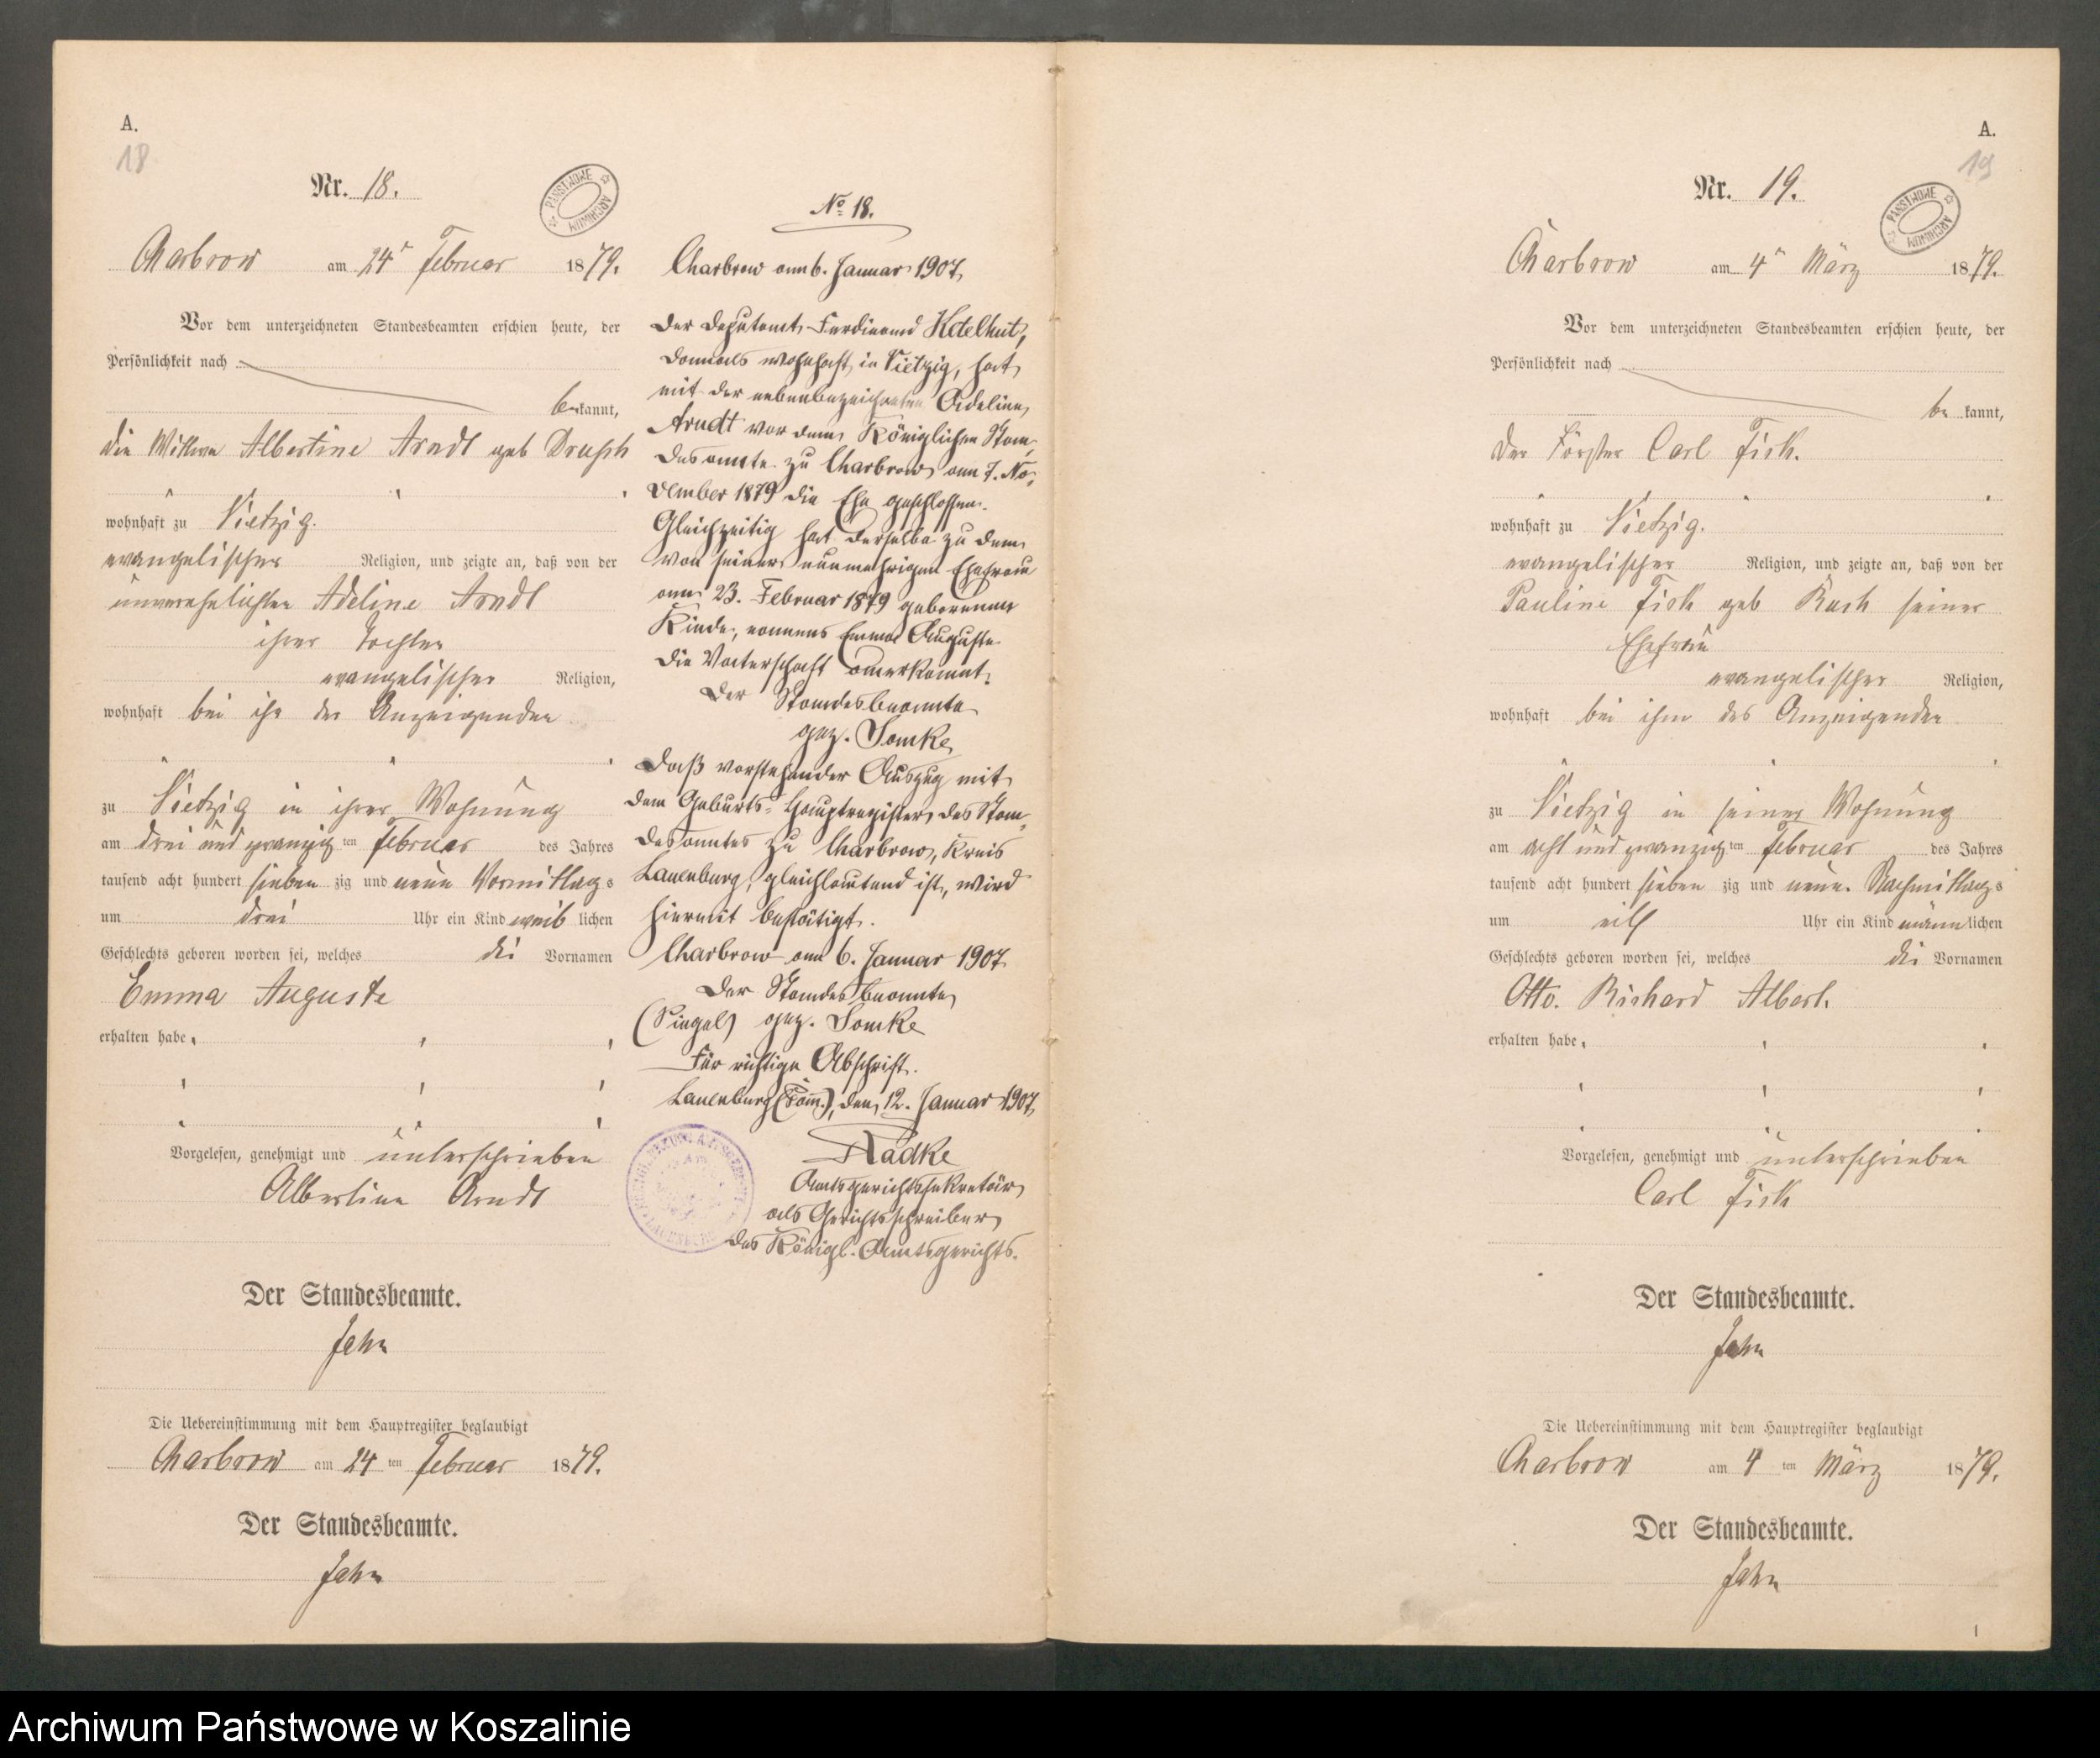 A.
18
Nr. 18.
PAŃSTWOWE ARCHIWUM
Charbrow am 24ᵗ Februar 1879.
Vor dem unterzeichneten Standesbeamten erschien heute, der
Persönlichkeit nach
bekannt,
die Wittwe Albertine Arndt geb Drusch
wohnhaft zu Vietzig.
evangelischer Religion, und zeigte an, daß von der
unverehelichten Adeline Arndt
ihrer Tochter
evangelischer Religion,
wohnhaft bei ihr der Anzeigenden
zu Vietzig in ihrer Wohnung
am drei und zwanzig ten Februar des Jahres
tausend acht hundert sieben zig und neun Vormittags
um drei Uhr ein Kind weiblichen
Geschlechts geboren worden sei, welches die Vornamen
Emma Auguste
erhalten habe.
Vorgelesen, genehmigt und unterschrieben
Albertine Arndt
Der Standesbeamte.
Jahn
Die Uebereinstimmung mit dem Hauptregister beglaubigt
Charbrow am 24 ten Februar 1879.
Der Standesbeamte.
Jahn
No 18.
Charbrow am 6. Januar 1907.
Der Deputant Ferdinand Ketelhut,
damals wohnhaft in Vietzig, hat
mit der nebenbezeichneten Adeline
Arndt vor dem Königlichen Stan-
desamte zu Charbrow am 7. No-
vember 1879 die Ehe geschlossen.
Gleichzeitig hat derselbe zu dem
von seiner nunmehrigen Ehefrau
am 23. Februar 1879 geborenen
Kinde, namens Emma Auguste
die Vaterschaft anerkannt.
Der Standesbeamte
gez.
Daß vorstehender Auszug mit
dem Geburts-Hauptregister des Stan-
desamtes zu Charbrow, Kreis
Lauenburg, gleichlautend ist, wird
hiermit bestätigt.
Charbrow am 6. Januar 1907
Der Standesbeamte
(Siegel) gez.
Für richtige Abschrift.
Lauenburg (Pom.), den 12. Januar 1907
Radke
Amtsgerichtssekretär
als Gerichtsschreiber
des Königl. Amtsgerichts.
A.
19
Nr. 19.
PAŃSTWOWE ARCHIWUM
Charbrow am 4ᵗ März 1879.
Vor dem unterzeichneten Standesbeamten erschien heute, der
Persönlichkeit nach
bekannt,
der Förster Carl Fick.
wohnhaft zu Vietzig.
evangelischer Religion, und zeigte an, daß von der
Pauline Fick geb seiner
Ehefrau
evangelischer Religion,
wohnhaft bei ihm des Anzeigenden
zu Vietzig in seiner Wohnung
am acht und zwanzig ten Februar des Jahres
tausend acht hundert sieben zig und neun. Nachmittags
um elf Uhr ein Kind männlichen
Geschlechts geboren worden sei, welches die Vornamen
Otto. Richard Albert.
erhalten habe.
Vorgelesen, genehmigt und unterschrieben
Carl Fick
Der Standesbeamte.
Jahn
Die Uebereinstimmung mit dem Hauptregister beglaubigt
Charbrow am 4 ten März 1879.
Der Standesbeamte.
Jahn
Archiwum Państwowe w Koszalinie